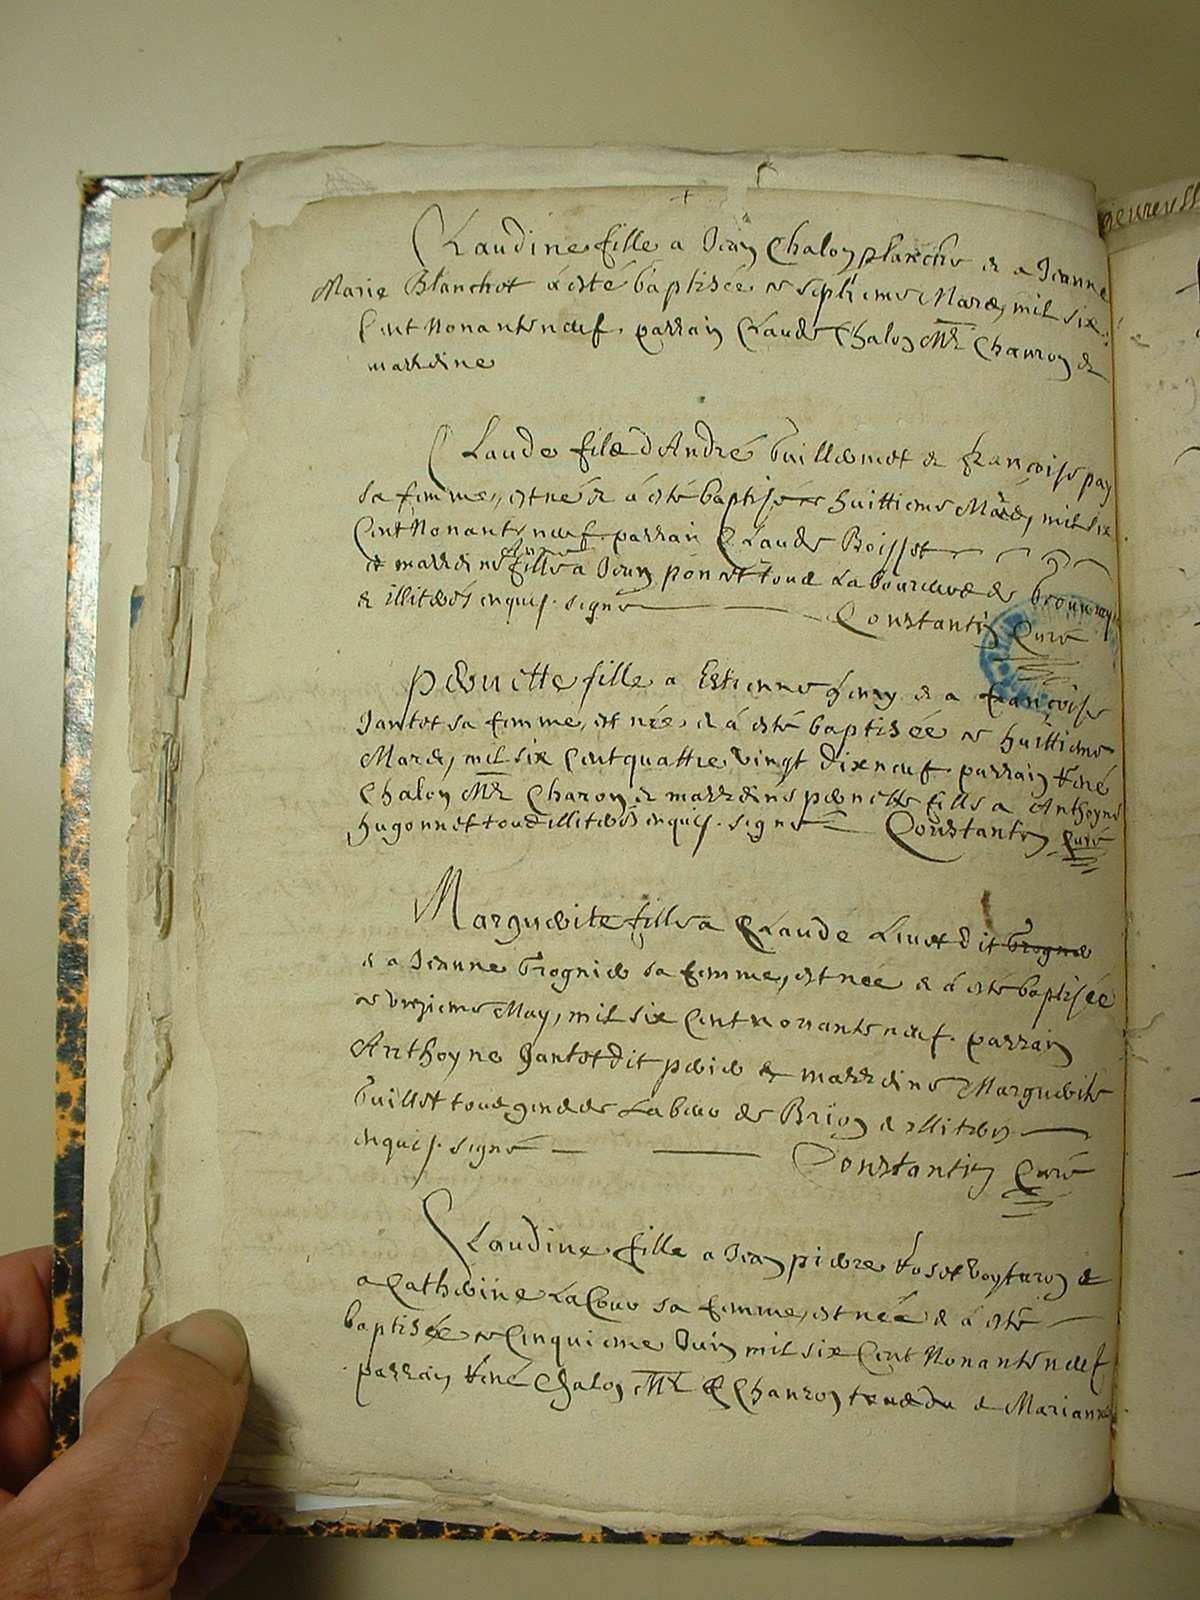 Claudine fille a Jean Chalon planche & a Jeanne
Marie Blanchot a esté baptisée ce septieme Mars, mil six
Cent Nonante neuf. parrain Claude Chalon Mre Charron &
marrdine
Claude fils d'André Guillemot & françoise pay
sa femme, est né & a esté baptisé ce huittieme Mars, mil six
Cent Nonante neuf. parrain Claude Boisset
& marrdine fille a Jean ponsot tous Laboureurs de
& illiterés enquis. signé Constantin Curé
pierrette fille a Estienne henry & a françoise
Jantot sa femme, est née & a esté baptisée ce huittieme
Mars, mil six Cent quattre vingt dixneuf parrain René
Chalon Mre Charon & marrdine pierrette fille a Anthoyne
hugonnet tous illiterés enquis. signé Constantin Curé
Marguerite fille a Claude Livet dit
& a Jeanne Grognier sa femme, est née & a esté baptisée
ce unzieme May, mil six Cent nonante neuf. parrain
Anthoyne Jantot dit & marrdine Marguerite
Guillot tous gendes Labeur de Brion & illiterés
enquis. signé Constantin Curé
Claudine fille a Jean pierre voyturon &
a Catherine sa femme, est née & a esté
baptisée ce Cinquieme Juin mil six Cent Nonante neuf
parrain René Chalon Mre Charron & Marianne